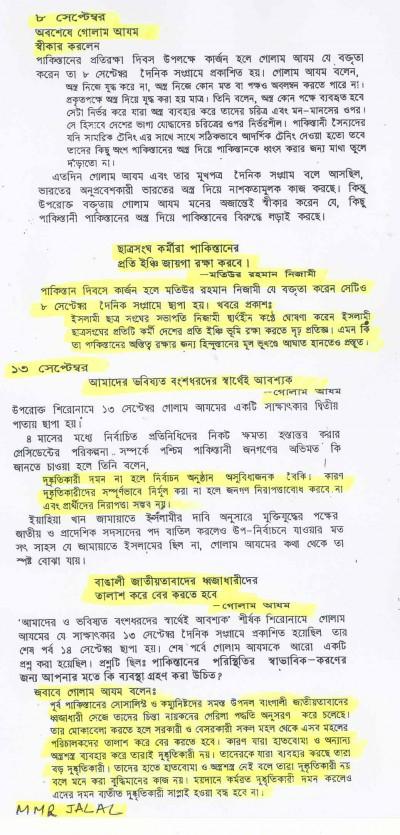 ৮ সেপ্টেম্বর
অবশেষে গোলাম আযম
স্বীকার করলেন
পাকিস্তানের প্রতিরক্ষা দিবস উপলক্ষে কার্জন হলে গোলাম আযম যে বক্তৃতা
করেন তা ৮ সেপ্টেম্বর দৈনিক সংগ্রামে প্রকাশিত হয়। গোলাম আযম বলেন,
অস্ত্র নিজে যুদ্ধ করে না, অস্ত্র নিজে কোন মত বা পক্ষও অবলম্বন করতে পারে না।
প্রকৃতপক্ষে অস্ত্র দিয়ে যুদ্ধ করা হয় মাত্র। তিনি বলেন, অস্ত্র কোন পক্ষে ব্যবহৃত হবে
সেটা নির্ভর করে যারা অস্ত্র ব্যবহার করে তাদের চরিত্র এবং মন-মানসের ওপর।
সে হিসাবে দেশের ভাগ্য যোদ্ধাদের চরিত্রের ওপর নির্ভরশীল। পাকিস্তানী সৈন্যদের
যদি সামরিক ট্রেনিং এর সাথে সাথে সঠিকভাবে আদর্শিক ট্রেনিং দেওয়া হতো তবে
তাদের কিছু অংশ পাকিস্তানের অস্ত্র দিয়ে পাকিস্তানকে ধ্বংস করার জন্য মাথা তুলে
দাঁড়াতো না।
এতদিন গোলাম আযম এবং তার মুখপত্র দৈনিক সংগ্রাম বলে আসছিল,
ভারতের অনুপ্রবেশকারী ভারতের অস্ত্র দিয়ে নাশকতামূলক কাজ করছে। কিন্তু
উপরোক্ত বক্তৃতায় গোলাম আযম মনের অজান্তেই স্বীকার করেন যে, কিছু
পাকিস্তানী পাকিস্তানের অস্ত্র দিয়ে পাকিস্তানের বিরুদ্ধে লড়াই করছে।
ছাত্রসংঘ কর্মীরা পাকিস্তানের
প্রতি ইঞ্চি জায়গা রক্ষা করবে।
—মতিউর রহমান নিজামী
পাকিস্তান দিবসে কার্জন হলে মতিউর রহমান নিজামী যে বক্তৃতা করেন সেটিও
৮ সেপ্টেম্বর দৈনিক সংগ্রামে ছাপা হয়। খবরে প্রকাশঃ
ইসলামী ছাত্র সংঘের সভাপতি নিজামী দ্ব্যর্থহীন কণ্ঠে ঘোষণা করেন ইসলামী
ছাত্রসংঘের প্রতিটি কর্মী দেশের প্রতি ইঞ্চি ভূমি রক্ষা করতে দৃঢ় প্রতিজ্ঞ। এমন কি
তা পাকিস্তানের অস্তিত্ব রক্ষার জন্য হিন্দুস্তানের মূল ভূখণ্ডে আঘাত হানতেও প্রস্তুত।
১৩ সেপ্টেম্বর
আমাদের ভবিষ্যত বংশধরদের স্বার্থেই আবশ্যক
—গোলাম আযম
উপরোক্ত শিরোনামে ১৩ সেপ্টেম্বর গোলাম আযমের একটি সাক্ষাৎকার দ্বিতীয়
পাতায় ছাপা হয়।
৪ মাসের মধ্যে নির্বাচিত প্রতিনিধিদের নিকট ক্ষমতা হস্তান্তর করার
প্রেসিডেন্টের পরিকল্পনা সম্পর্কে পশ্চিম পাকিস্তানী জনগণের অভিমত কি
জানতে চাওয়া হলে তিনি বলেন,
দুষ্কৃতিকারী দমন না হলে নির্বাচন অনুষ্ঠান অসুবিধাজনক বৈকি। কারণ
দুষ্কৃতিকারীদের সম্পূর্ণভাবে নির্মূল করা না হলে জনগণ নিরাপত্তাবোধ করবে না
এবং প্রার্থীদের নিরাপত্তা সম্ভব নয়।
ইয়াহিয়া খান জামায়াতে ইসলামীর দাবি অনুসারে মুক্তিযুদ্ধের পক্ষের
জাতীয় ও প্রাদেশিক সদস্যদের পদ বাতিল করলেও উপ-নির্বাচনে যাওয়ার মত
সৎ সাহস যে জামায়াতে ইসলামের ছিল না, গোলাম আযমের কথা থেকে তা
স্পষ্ট বোঝা যায়।
বাঙালী জাতীয়তাবাদের ধ্বজাধারীদের
তালাশ করে বের করতে হবে
—গোলাম আযম
'আমাদের ও ভবিষ্যত বংশধরদের স্বার্থেই আবশ্যক' শীর্ষক শিরোনামে গোলাম
আযমের যে সাক্ষাৎকার ১৩ সেপ্টেম্বর দৈনিক সংগ্রামে প্রকাশিত হয়েছিল তার
শেষ পর্ব ১৪ সেপ্টেম্বর ছাপা হয়। শেষ পর্বে গোলাম আযমকে আরো একটি
প্রশ্ন করা হয়েছিল। প্রশ্নটি ছিলঃ পাকিস্তানের পরিস্থিতির স্বাভাবিক-করণের
জন্য আপনার মতে কি ব্যবস্থা গ্রহণ করা উচিত?
জবাবে গোলাম আযম বলেনঃ
পূর্ব পাকিস্তানের সোসালিস্ট ও কম্যুনিষ্টদের সমস্ত উপদল বাংগালী জাতীয়তাবাদের
ধ্বজাধারী সেজে তাদের চিন্তা নায়কদের গেরিলা পদ্ধতি অনুসরণ করে চলেছে।
তার মোকাবেলা করতে হলে সরকারী ও বেসরকারী সকল মহল থেকে এসব মহলের
পরিচালকদের তালাশ করে বের করতে হবে। কারণ যারা হাতবোমা ও অন্যান্য
অস্ত্রশস্ত্র ব্যবহার করে তারাই দুষ্কৃতিকারী নয়। তাদেরকে যারা ব্যবহার করছে তারা
বড় দুষ্কৃতিকারী। তাদের হাতে হাতবোমা ও অস্ত্রশস্ত্র নেই বলে তারা দুষ্কৃতিকারী নয়
বলে মনে করা বুদ্ধিমানের কাজ নয়। ময়দানে কর্মরত দুষ্কৃতিকারী দমন করলেও
এদের দমন ব্যতীত দুষ্কৃতকারী সাপ্লাই হওয়া বন্ধ হবে না।
MMR JALAL